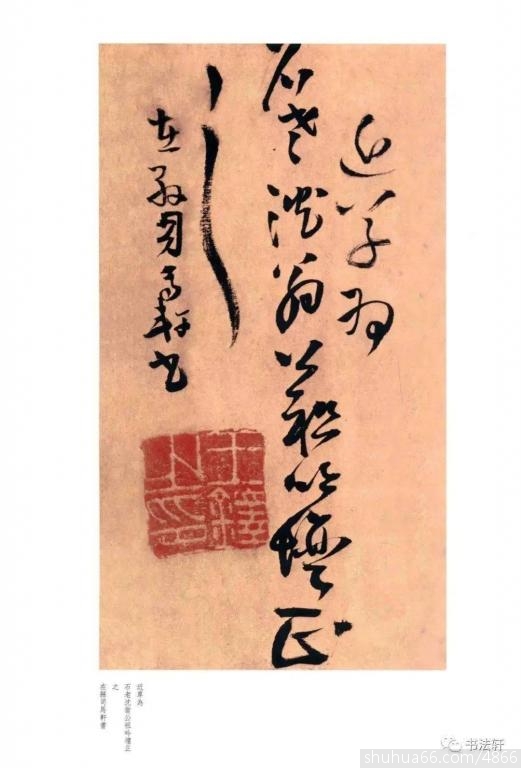 近草為
石老沈翁公祖吟壇正
之
在司馬軒書
王鐸之印
近草為
石老沈翁公祖吟壇正
之
在司馬軒書
书法轩
shuhua66.com/4866